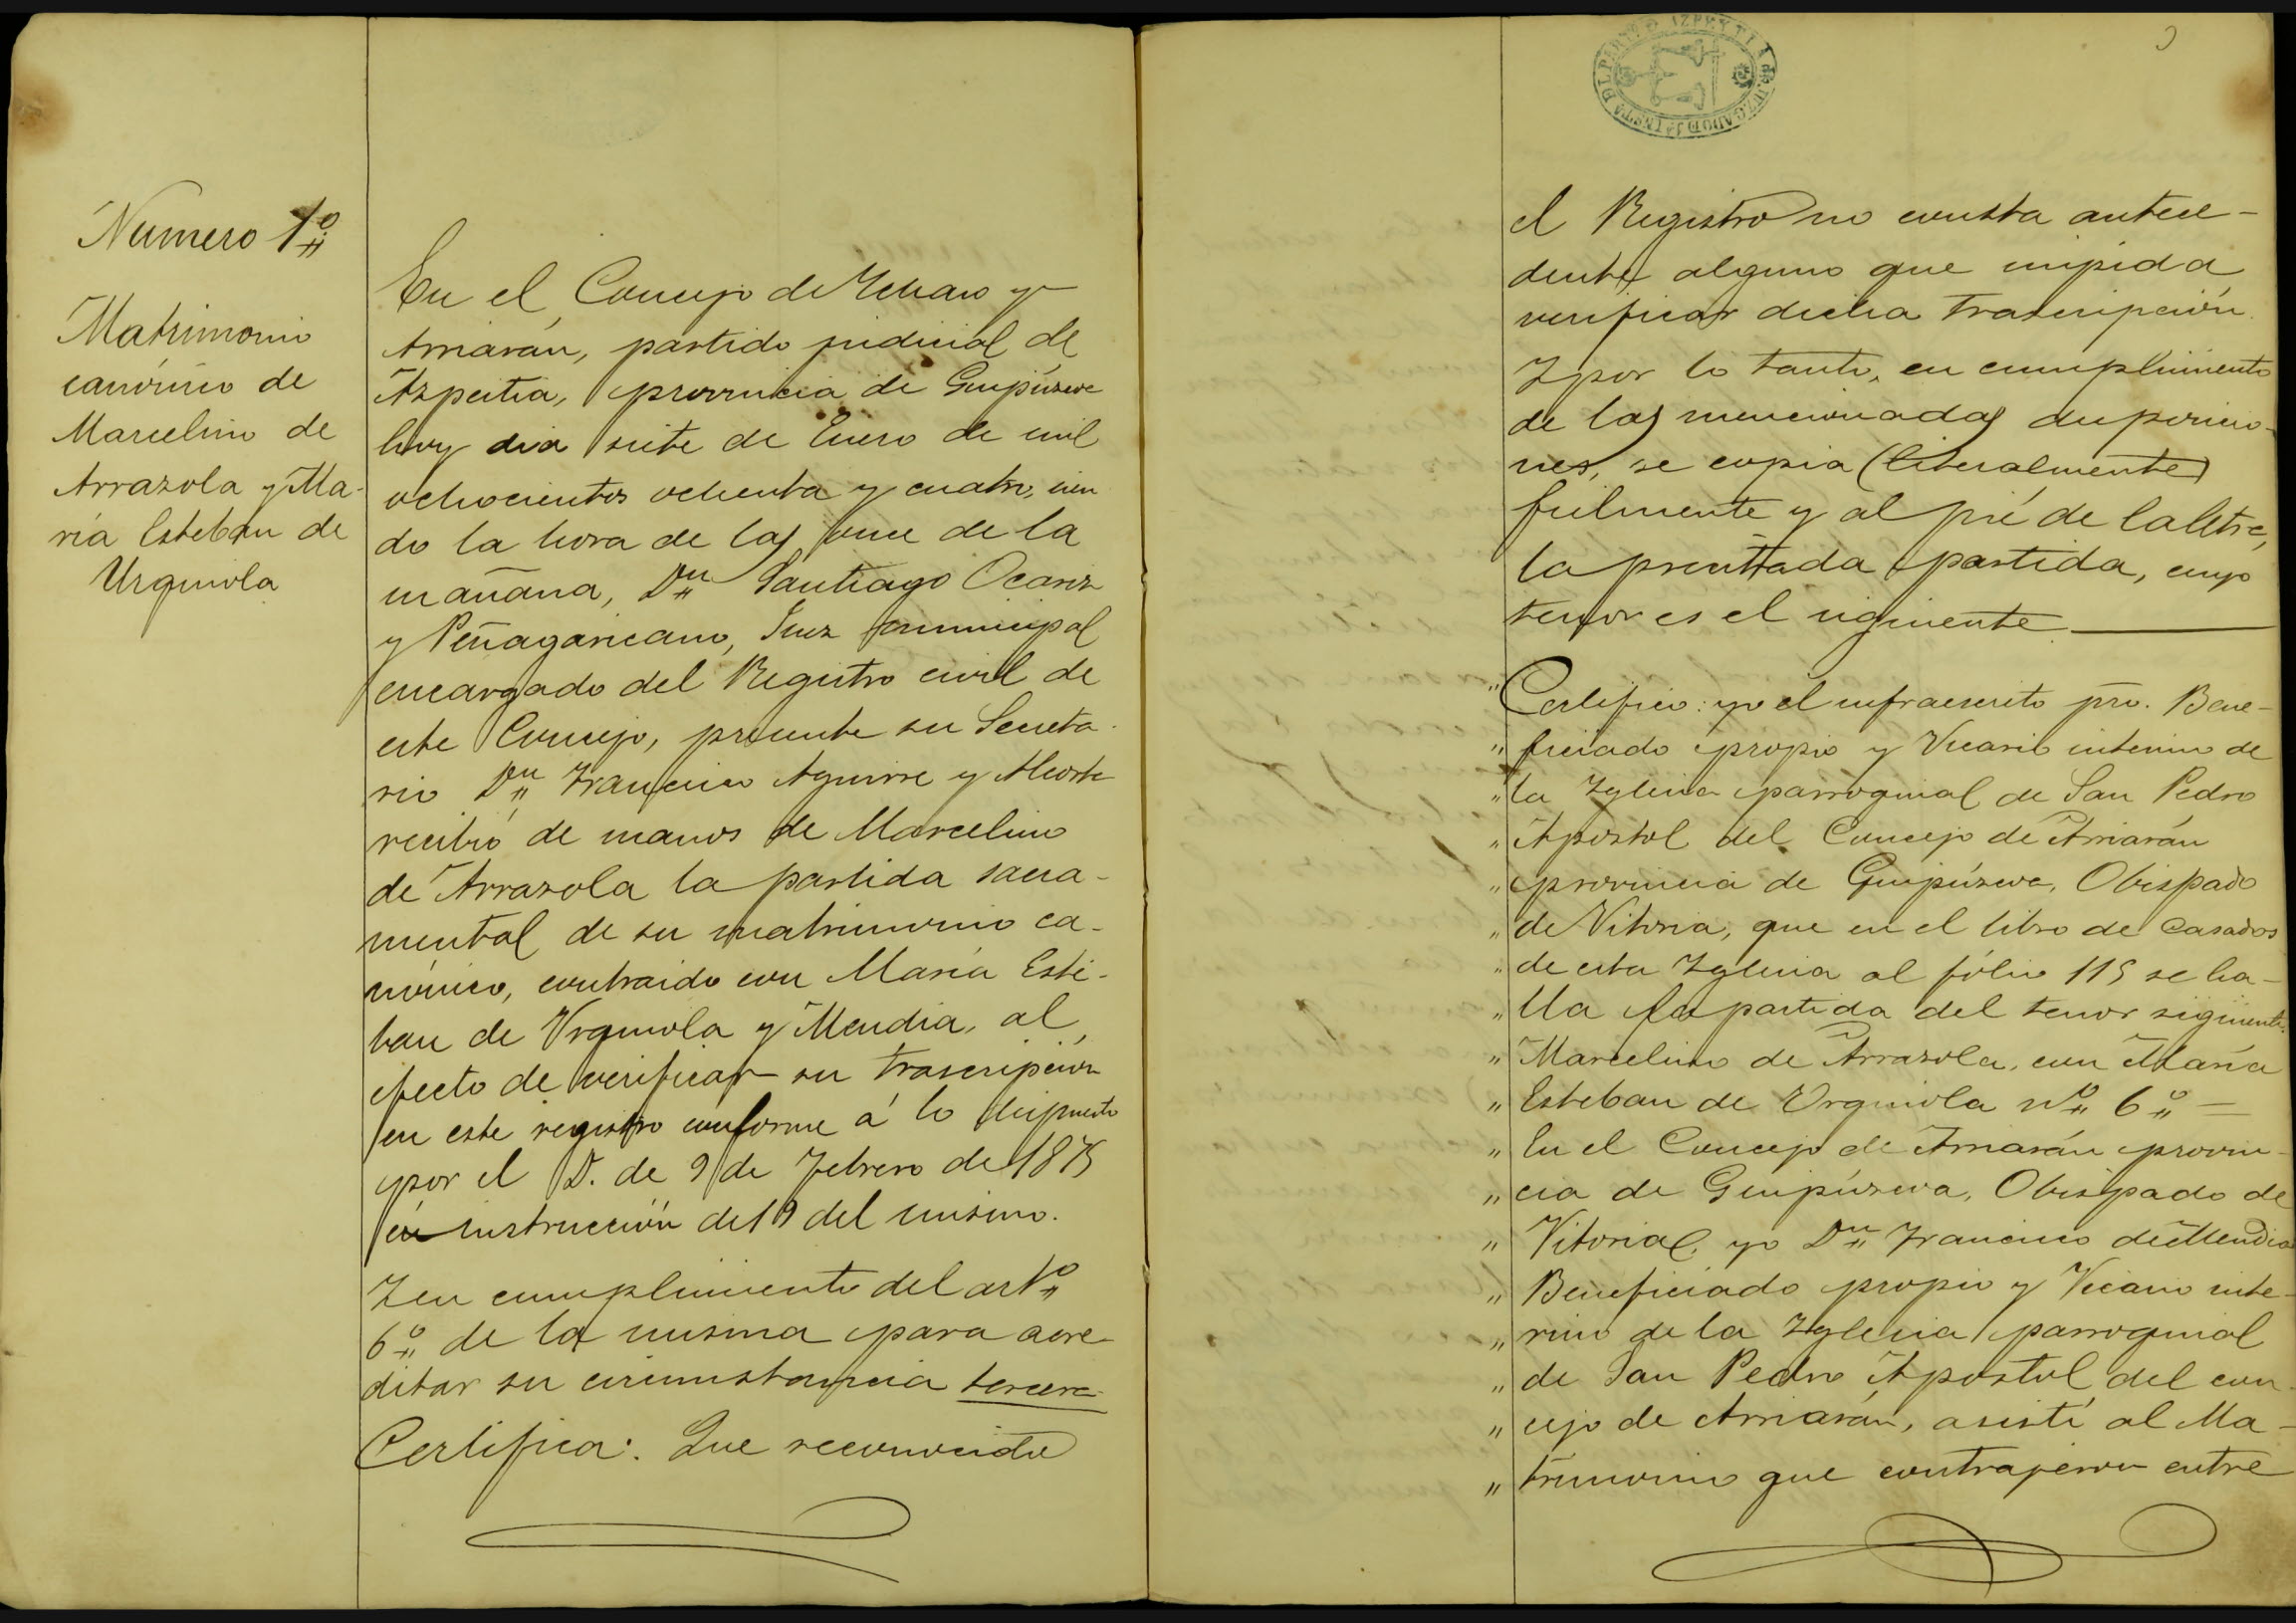 Numero 1º
Matrimonio
canónico de
Marcelino de
Arrazola y Ma-
ría Esteban de
Urquiola
En el Concejo de Ychaso y
Arriarán, partido judicial de
Azpeitia, provincia de Guipúzcoa
hoy dia siete de Enero de mil
ochocientos ochenta y cuatro, sien
do la hora de las once de la
mañana, Dn Santiago Ocariz
y Peñagaricano, Juez municipal
encargado del Registro civil de
este Concejo, presente su Secreta-
rio Dn Francisco Aguirre y
recibió de manos de Marcelino
de Arrazola la partida sacra-
mental de su matrimonio ca-
nónico, contraido con María Este-
ban de Urquiola y Mendia, al
efecto de verificar su trascripción
en este registro conforme á lo dispuesto
por el D. de 9 de Febrero de 1875
é instrucción del 19 del mismo.
Y en cumplimiento del artº
6º de la misma para acre-
ditar su circunstancia tercera
Certifica: Que reconocido
JUZGADO DE 1ª INSTª DEL PARTIDO AZPEYTIA
el Registro no consta antece-
dente alguno que impida
verificar dicha trascripción.
Y por lo tanto, en cumplimiento
de las mencionadas disposicio-
nes, se copia (literalmente)
fielmente y al pié de la letra,
la presentada partida, cuyo
tenor es el siguiente
" Certifico: yo el infraescrito pro. Bene-
" ficiado propio y Vicario interino de
" la Yglesia parroquial de San Pedro
" Apostol del Concejo de Arriarán
" provincia de Guipúzcoa, Obispado
" de Vitoria, que en el libro de casados
" de esta Yglesia al fólio 115 se ha-
" lla la partida del tenor siguiente.
" Marcelino de Arrazola, con María
" Esteban de Urquiola nº 6º =
" En el Concejo de Arriarán provin-
" cia de Guipúzcoa, Obispado de
" Vitoria, yo Dn Francisco de Mendia
" Beneficiado propio y Vicario inte-
" rino de la Yglesia parroquial
" de San Pedro Apostol del con-
" cejo de Arriarán, asistí al Ma-
" trimonio que contrajeron entre